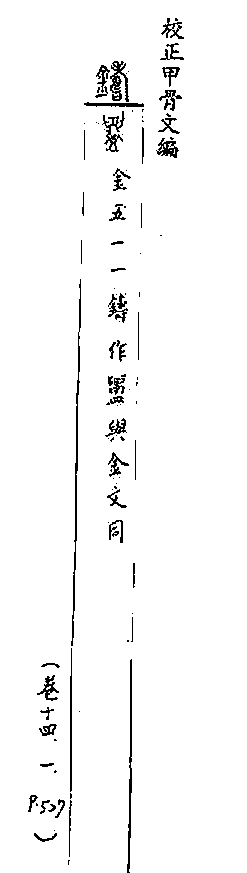 校正甲骨文編
鑄
金五一一鑄作盥與金文同
(卷十四.一. P.527)